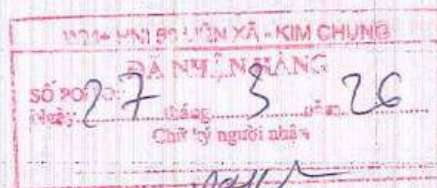 XÃ - KIM CHUNG
ĐÃ NHẬN HÀNG
SỐ PO
Ngày: 27 tháng 3 năm 26
Chữ ký người nhận